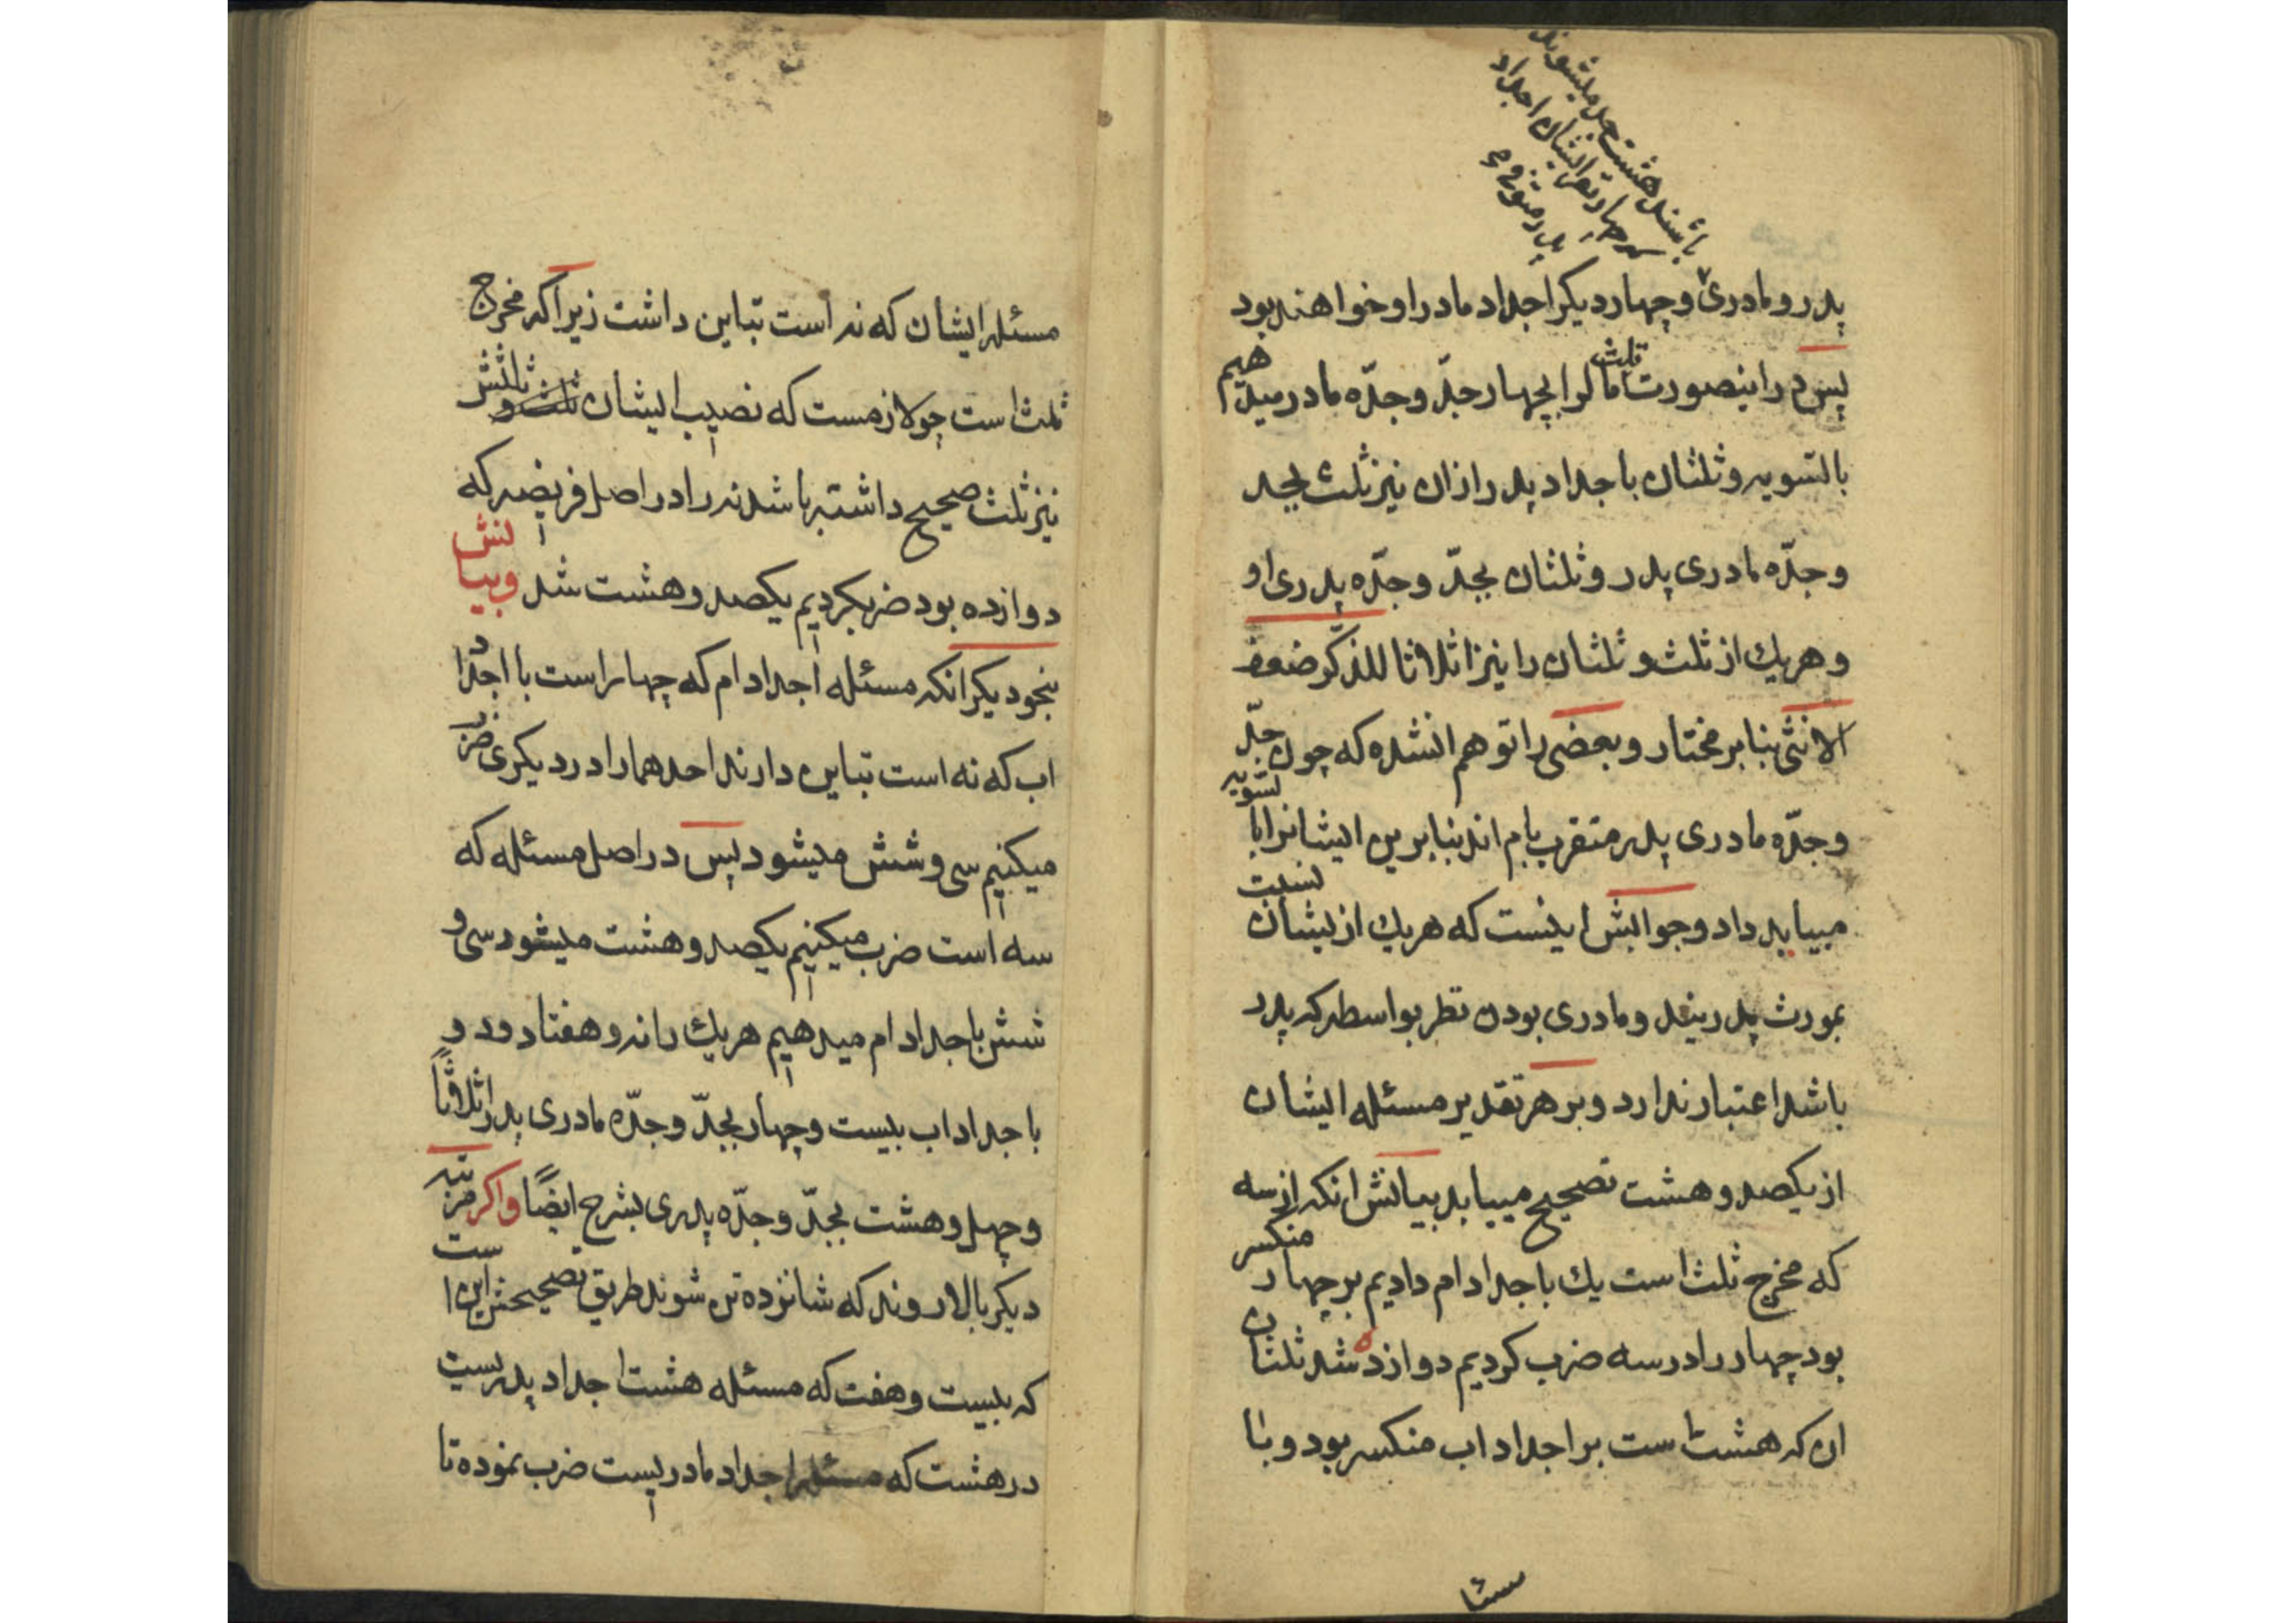 باشند هشت جد میشوند
که چهار نفر ایشان اجداد
پدر متوفی
پدر و مادری و چهار دیکر اجداد مادر او خواهند بود
پس در اینصورت ثلث مال را بچهار جدّ و جدّه مادر میدهیم
بالتسویه و ثلثان باجداد پدر از ان نیز ثلث بجد
و جدّه مادری پدر و ثلثان بجدّ و جدّه پدری او
و هریك از ثلث و ثلثان را نیز اثلاثا للذّکر ضعف
الانثی بنابر مختار و بعضی را توهم انشده که چون جدّ
و جدّه مادری پدر متقرب بام اند بنابرین ایشانرا با تسویه
میباید داد و جوابش اینست که هریك از یشان نسبت
بمورث پدریند و مادری بودن نظر بواسطه که پدر
باشد اعتبار ندارد و بر هر تقدیر مسئله ایشان
از یکصد و هشت تصحیح مییابد بیانش انکه از سه
که مخرج ثلث است یك باجداد ام دادیم بر چهار منکسر
بود چهار را در سه ضرب کردیم دوازده شد ثلثان
ان که هشت است بر اجداد اب منکسر بود و با
مسئله ایشان که نه است تباین داشت زیرا که مخرج
ثلث است چو لازمست که نصیب ایشان ثلث و ثلثش
نیز ثلث صحیح داشته باشد نه را در اصل فریضه که
دوازده بود ضرب کردیم یکصد و هشت شد و بیانش
بنحو دیکر انکه مسئله اجداد ام که چهار است با اجداد
اب که نه است تباین دارند احدهما را در دیکری ضرب
میکنیم سی و شش میشود پس در اصل مسئله که
سه است ضرب میکنیم یکصد و هشت میشود سی و
شش باجداد ام میدهیم هریك را نه و هفتاد و دو
باجداد اب بیست و چهار بجدّ و جدّه مادری پدر اثلاثًا
و چهل و هشت بجدّ و جدّه پدری بشرح ایضًا و اکر مرتبه
دیکر بالا روند که شانزده تن شوند طریق تصحیحش این است
که بیست و هفت که مسئله هشت اجداد پدریست
در هشت که مسئله اجداد مادریست ضرب نموده تا